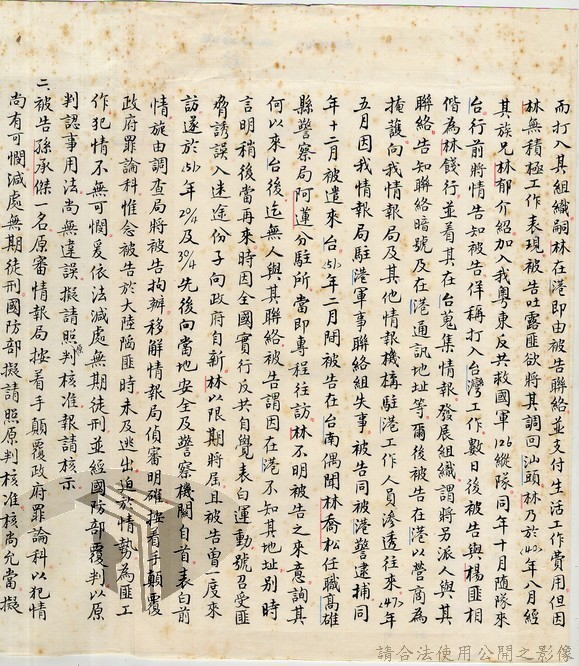 而打入其組織嗣林在港即由被告聯絡並支付生活工作費用但因
林無積極工作表現被告吐露匪欲將其調回汕頭林乃於(43)年八月經
其族兄林郁介紹加入我粵東反共救國軍126縱隊同年十月隨隊來
台行前將情告知被告佯稱打入台灣工作數日後被告與楊匪相
偕為林餞行並着其在台蒐集情報發展組織謂將另派人與其
聯絡告知聯絡暗號及在港通訊地址等爾後被告在港以營商為
掩護向我情報局及其他情報機構駐港工作人員滲透往來(47)年
五月因我情報局駐港軍事聯絡組失事被告同被港警逮捕同
年十二月被遣來台(51)年二月間被告在台南偶聞林喬松任職高雄
縣警察局阿蓮分駐所當即專程往訪林不明被告之來意詢其
何以來台後迄無人與其聯絡被告謂因在港不知其地址別時
言明稍後當再來時因全國實行反共自覺表白運動號召受匪
脅誘誤入迷途份子向政府自新林以限期將屆且被告曾一度來
訪遂於(51)年29/4及30/4先後向當地安全及警察機關自首表白前
情旋由調查局將被告拘辦移解情報局偵審明確按着手顛覆
政府罪論科惟念被告於大陸陷匪時未及逃出迫於情勢為匪工
作犯情不無可憫爰依法減處無期徒刑並經國防部覆判以原
判認事用法尚無違誤擬請照判核准報請核示
二、被告孫承傑一名原審情報局按着手顛覆政府罪論科以犯情
尚有可憫減處無期徒刑國防部擬請照原判核准核尚允當擬
請合法使用公開之影像